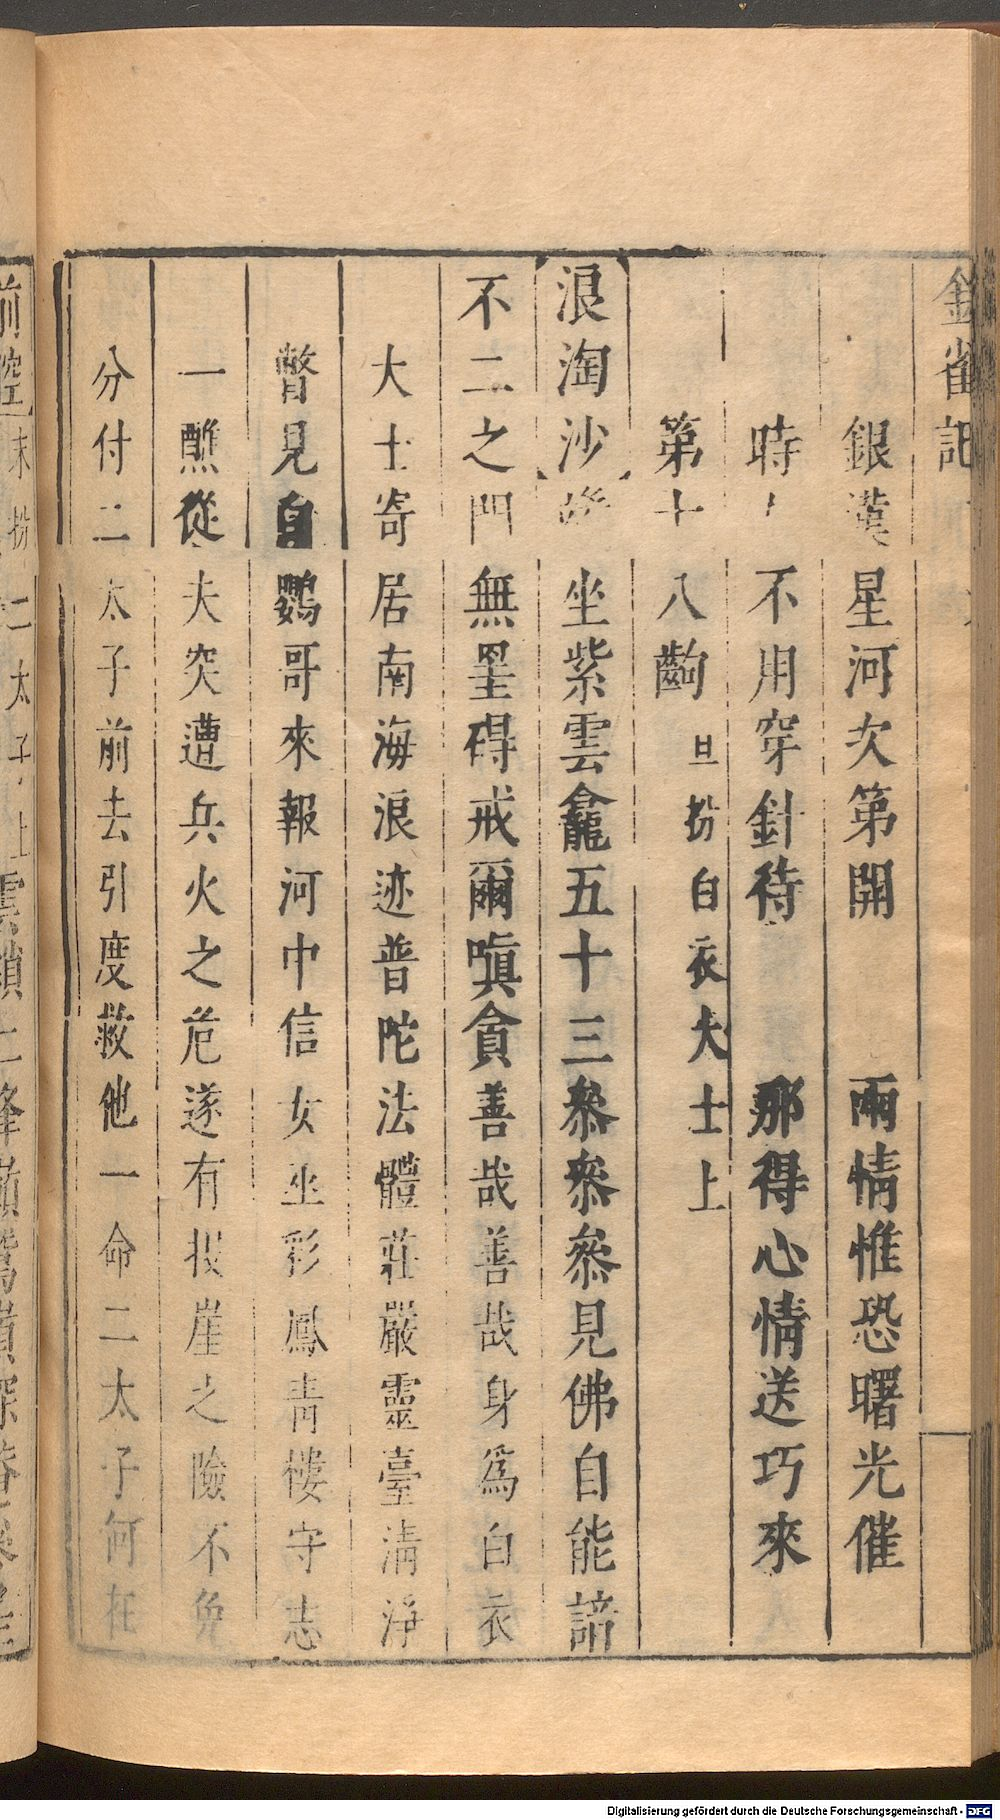 金雀記
銀漢星河次第開　兩情惟恐曙光催
時 不用穿針待　那得心情送巧來
第十八齣 旦扮白衣大士上
浪淘沙 坐紫雲龕五十三叅叅叅見佛自能諳
不二之門無罣碍戒爾嗔貪善哉善哉身爲白衣
大士寄居南海浪迹普陀法體莊嚴靈臺淸淨
瞥見白鸚哥來報河中信女巫彩鳳靑樓守志
一醮從夫突遭兵火之危遂有投崖之險不免
分付二太子前去引度救他一命二太子何在
前腔 末扮二太子上雲鎖
Digitalisierung gefördert durch die Deutsche Forschungsgemeinschaft - DFG